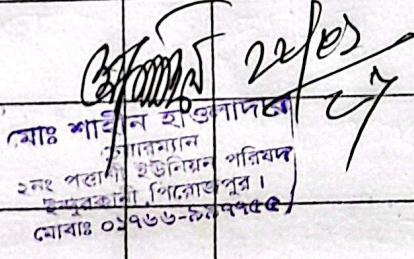 ২২/০১
২১
মোঃ শাহীন হাওলাদার
চেয়ারম্যান
২নং পত্তাশী ইউনিয়ন পরিষদ
ইন্দুরকানী, পিরোজপুর।
মোবাঃ ০১৭৬৬-